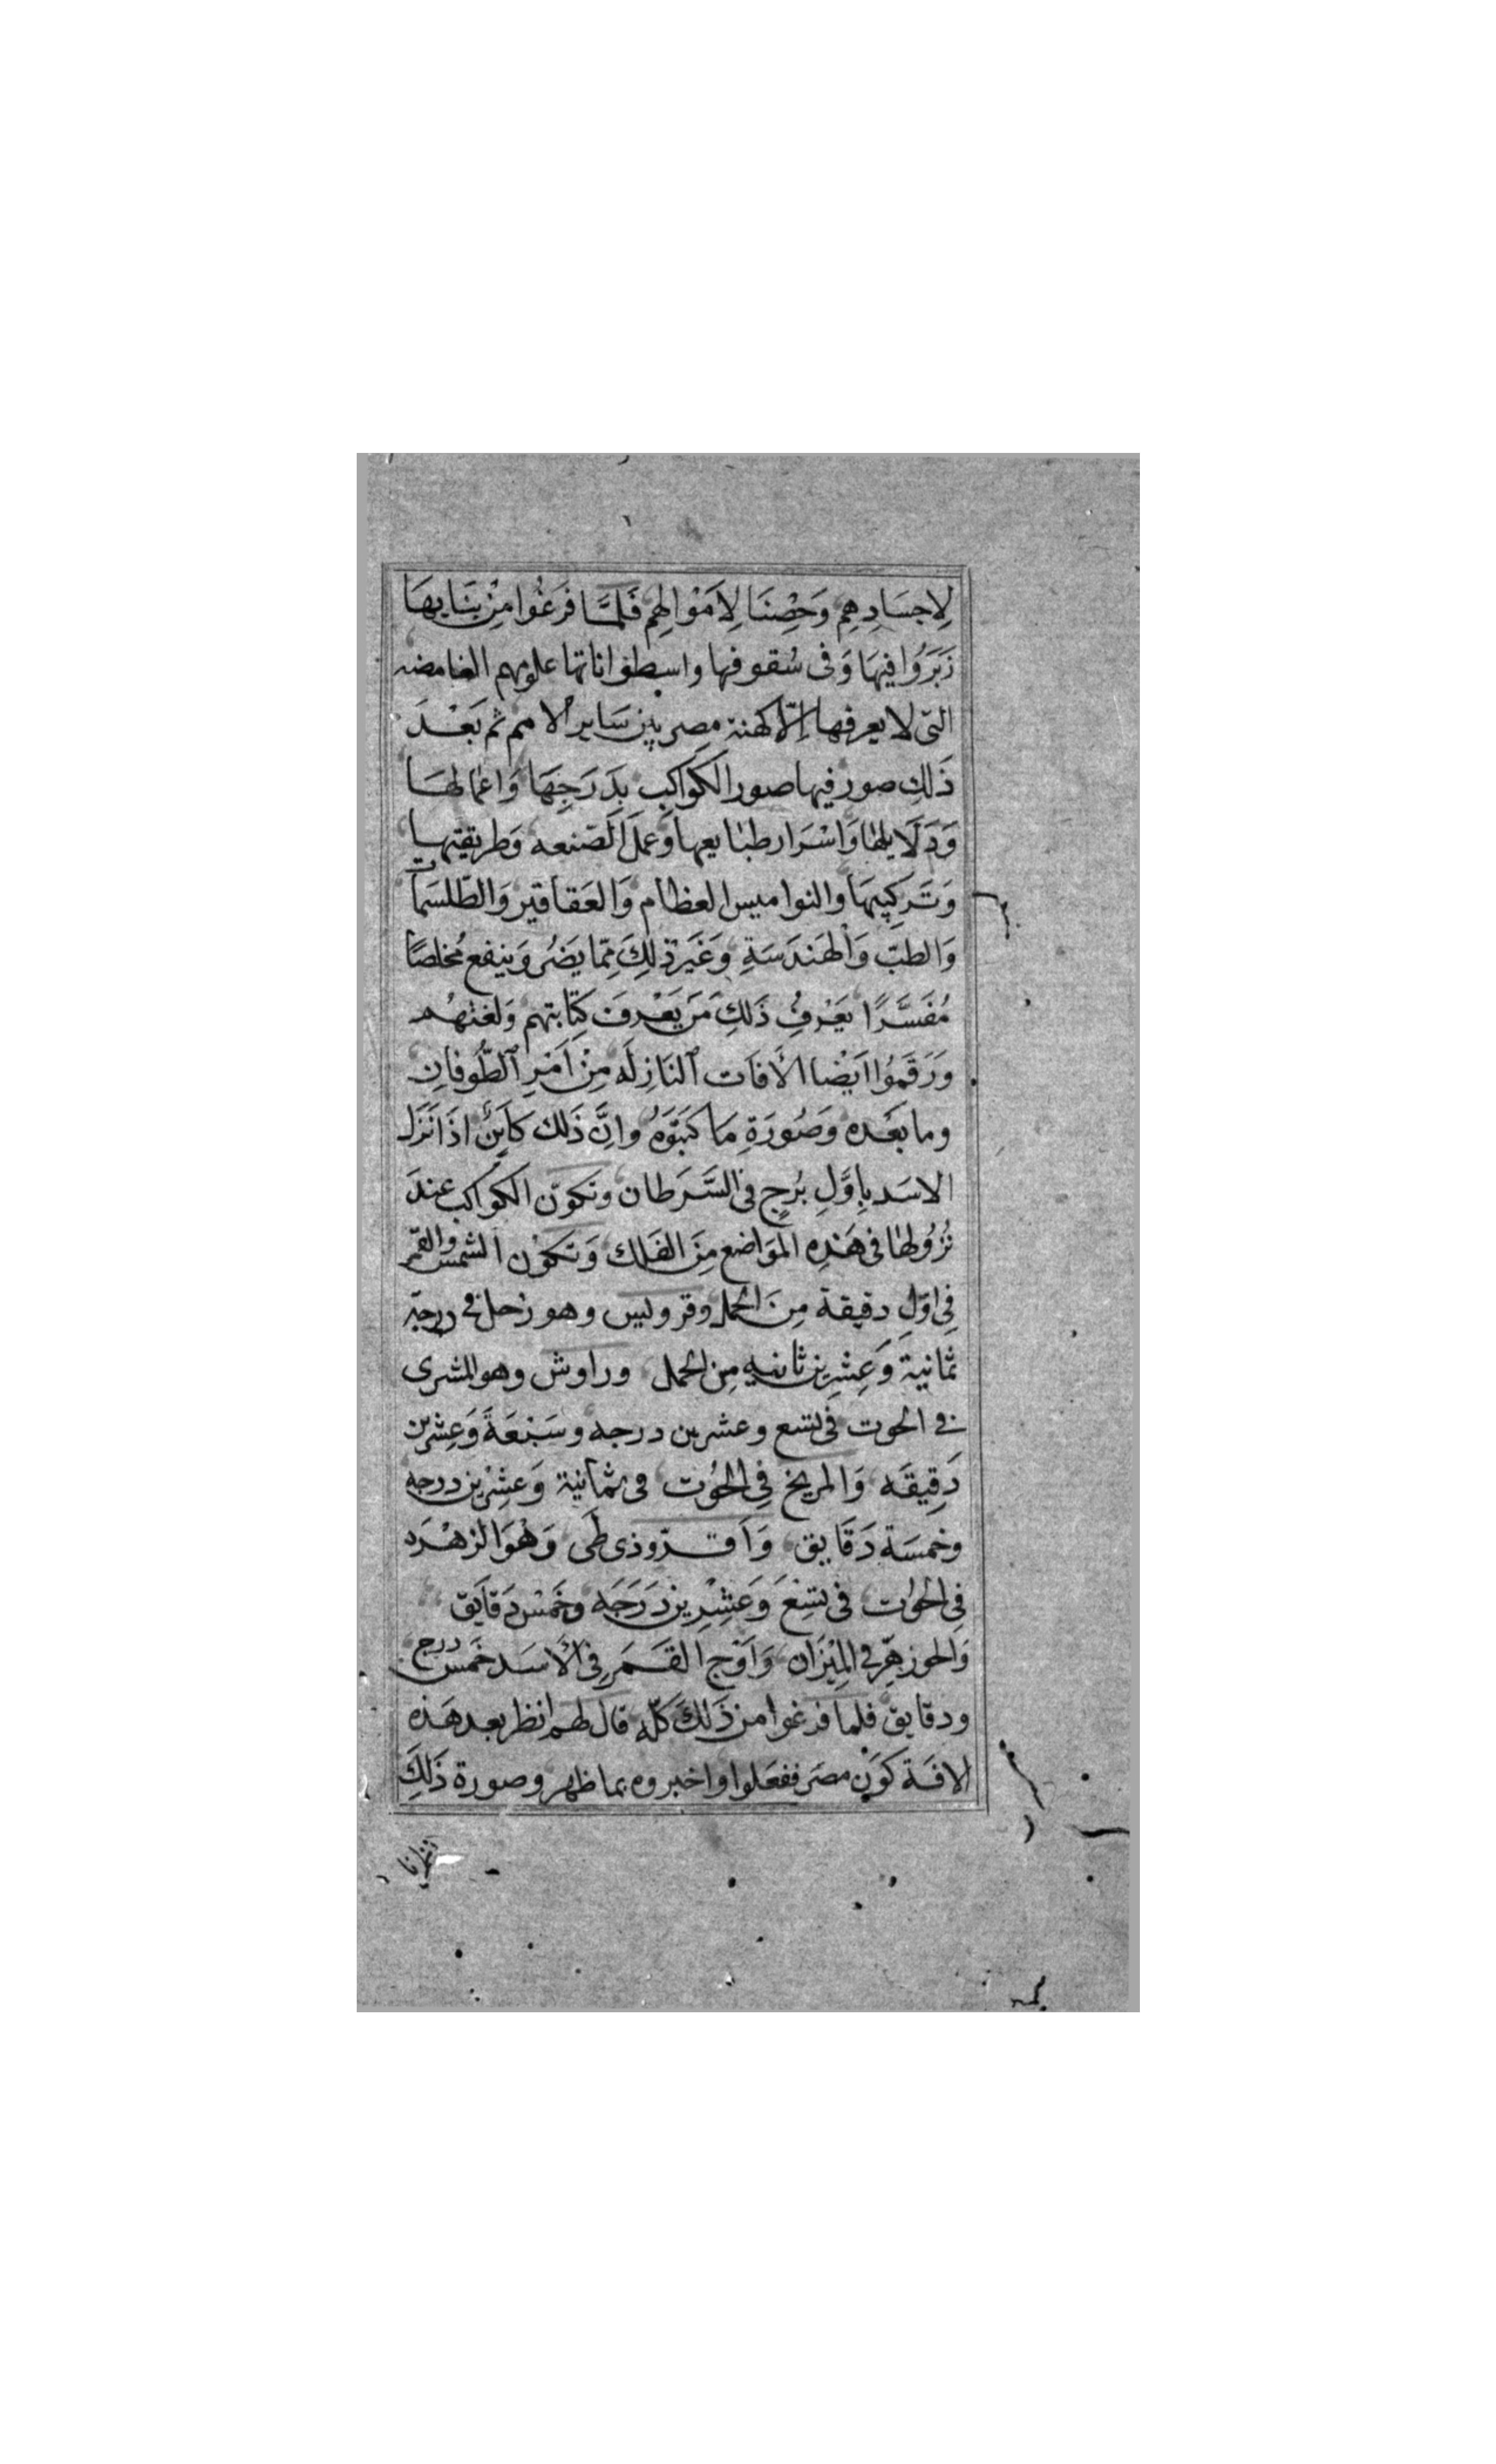 لِاجسَادِهِم وَحِصْنَا لِاَمْوَالِهِم فَلَمَّا فرَغُوا مِنْ بنَايهَا
زَبَرُوا فيهَا وَفى سُقوفها واسطواناتها علومهم الغامضه
التى لا يعرفها اِلّا كهنة مصر بين سَاير الامم ثم بَعْدَ
ذَلِكَ صور فيها صور الكواكب بِدَرَجِهَا وَاعمالهَا
وَدَلَايلها وَاسْرَار طبايعها وَعمل الصَنعه وَطريقتها
وَتَركيبهَا والنواميس العظام وَالعَقاقير وَالطّلسَمات
وَالطبّ وَالهَندَسَةِ وَغَير ذلِكَ مِمّا يَضُر وَينفع مُخلصًا
مُفَسَّرًا يَعْرِفُ ذَلِكَ مَن يَعْرِف كِتَابتهم وَلغتهُم
وَرَقَمُوا اَيْضا الأفَات النَازِلَه مِنْ اَمْرِ الطُّوفانِ
وما بَعْده وَصُورَةِ مَا كَتَبَوُه وانّ ذَلك كَاين اذَا نَزَل
الاسَد بِاوَّلِ بُرجٍ فى السَّرَطان وتكون الكواكب عندَ
نُزُولها فى هَذِه المَوَاضع مِنَ الفَلك وَتكون الشمس والقمر
فِى اوّلِ دقيقة مِنَ الحمل وقرونيس وهو زحل فى درجة
ثمانية وَعِشرين ثانيه مِن الحمل وراوش وهو المشرى
فى الحوت فى تسع وعشرين درجه وسَبْعَة وَعِشرين
دَقِيقَه وَالمريخ فِى الحُوت فى ثمانية وَعشرين درجه
وخمسَة دَقَايق وَافرّوذى طَى وَهْوَ الزهْرَه
فِى الحُوت فى تسْعَ وَعَشِرين دَرَجَه وَخمْس دَقايَق
وَالجوزهِر فى المِيْزَان وَاوَج القَمَر فِى الأسَد خَمس درج
ودقايق فلما فرغوا من ذَلكَ كلّه قال لهم انظر بعد هَذه
الافَة كَوْن مصَر ففعَلوا واخبروه بما ظهر وصورة ذَلِكَ